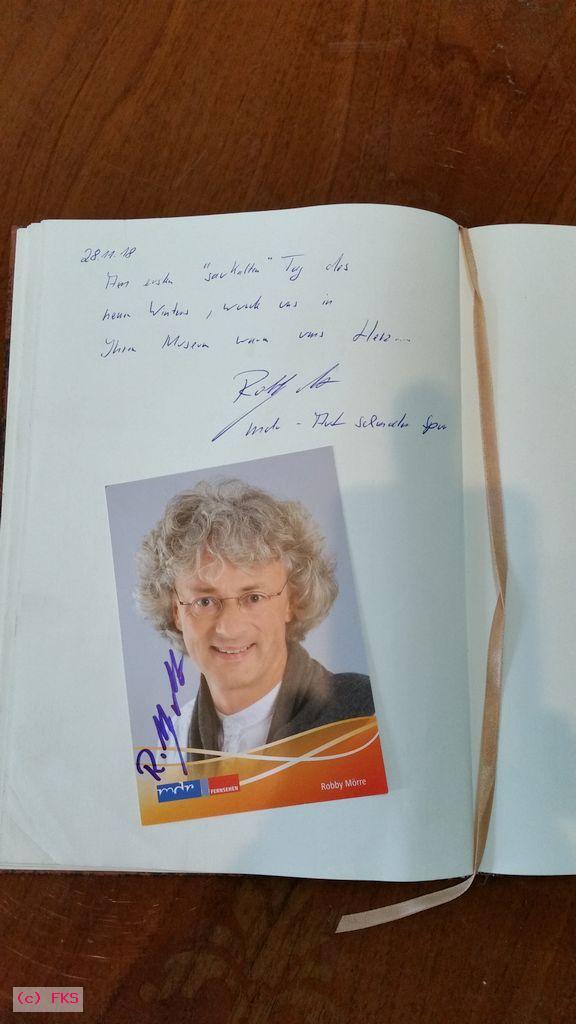 28.11.18
Am ersten "saukalten" Tag des
neuen Winters, wurde uns in
Ihrem Museum warm ums Herz...
mdr - Auf schmaler Spur
mdr FERNSEHEN
Robby Mörre
(c) FKS